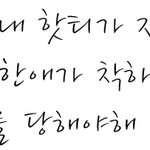 내 핫티가 지
한애가 착하
를 당해야해